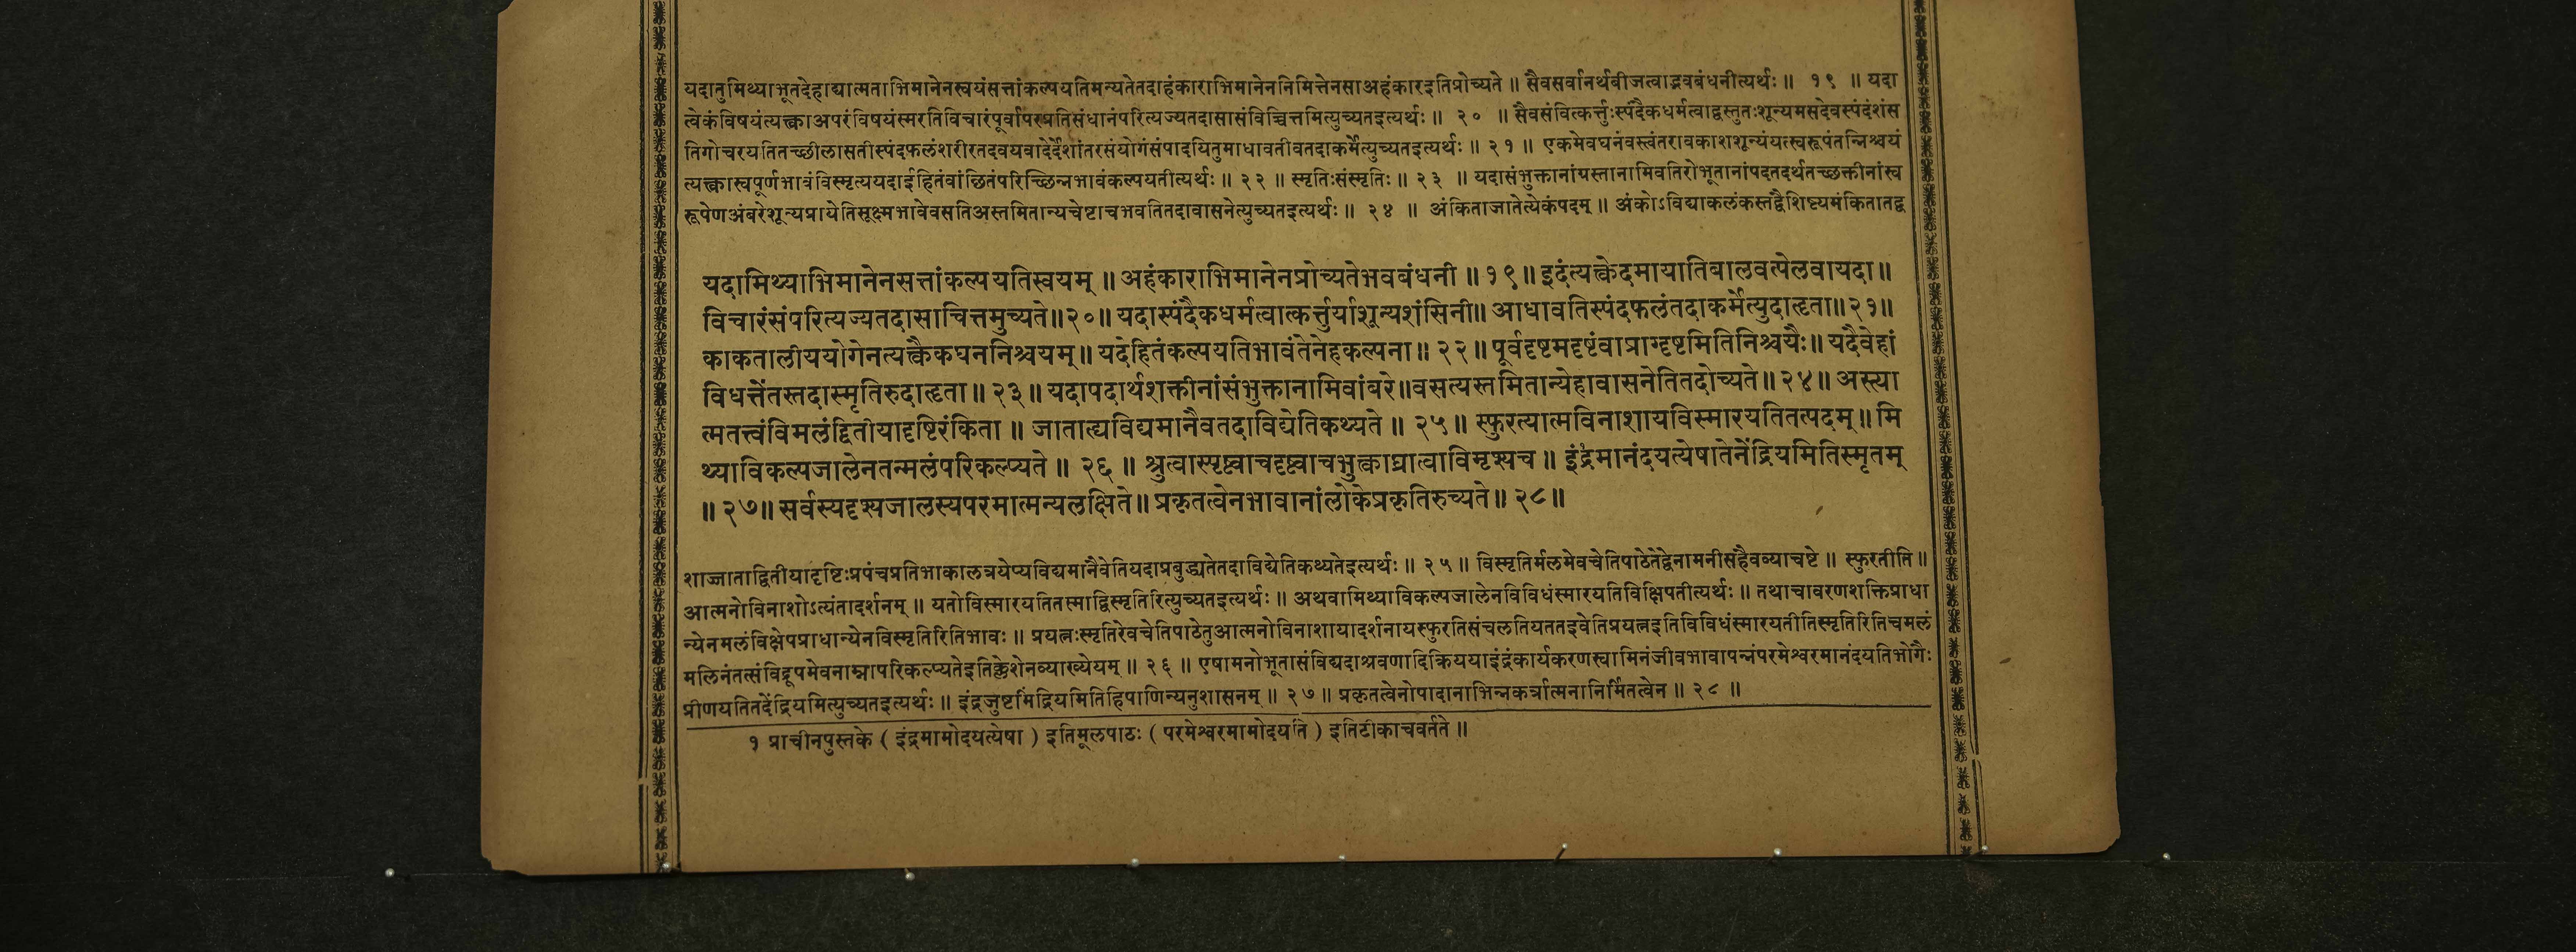 यदातुमिथ्याभूतदेहाद्यात्मताभिमानेनस्वयंसत्तांकल्पयतिमन्यतेतदाहंकाराभिमानेननिमित्तेनसाअहंकारइतिप्रोच्यते ॥ सैवसर्वानर्थबीजत्वाद्भवबंधनीत्यर्थः ॥ १९ ॥ यदा
त्वेकंविषयंत्यक्त्वाअपरंविषयंस्मरतिविचारंपूर्वापरप्रतिसंधानंपरित्यज्यतदासासंविच्चित्तमित्युच्यतइत्यर्थः ॥ २० ॥ सैवसंवित्कर्त्तुःस्पंदैकधर्मत्वाद्वस्तुतःशून्यमसदेवस्पंदंशंस
तिगोचरयतितच्छीलासतीस्पंदफलंशरीरतदवयवादेर्देशांतरसंयोगंसंपादयितुमाधावतीवतदाकर्मेत्युच्यतइत्यर्थः ॥ २१ ॥ एकमेवघनंवस्त्वंतरावकाशशून्यंयत्स्वरूपंतन्निश्चयं
त्यक्त्वास्वपूर्णभावंविस्मृत्ययदाईहितंवांछितंपरिच्छिन्नभावंकल्पयतीत्यर्थः ॥ २२ ॥ स्मृतिःसंस्मृतिः ॥ २३ ॥ यदासंभुक्तानांयस्तानामिवतिरोभूतानांपदतदर्थतच्छक्तीनांस्व
रूपेणअंबरेशून्यप्रायेतिसूक्ष्मभावेवसतिअस्तमितान्यचेष्टाचभवतितदावासनेत्युच्यतइत्यर्थः ॥ २४ ॥ अंकिताजातेत्येकंपदम् ॥ अंकोऽविद्याकलंकस्तद्वैशिष्ट्यमंकितातद्व
यदामिथ्याभिमानेनसत्तांकल्पयतिस्वयम् ॥ अहंकाराभिमानेनप्रोच्यतेभवबंधनी ॥ १९ ॥ इदंत्यक्त्वेदमायातिबालवत्पेलवायदा ॥
विचारंसंपरित्यज्यतदासाचित्तमुच्यते ॥ २० ॥ यदास्पंदैकधर्मत्वात्कर्त्तुर्याशून्यशंसिनी ॥ आधावतिस्पंदफलंतदाकर्मेत्युदाहृता ॥ २१ ॥
काकतालीययोगेनत्यक्त्वैकघननिश्चयम् ॥ यदेहितंकल्पयतिभावंतेनेहकल्पना ॥ २२ ॥ पूर्वदृष्टमदृष्टंवाप्राग्दृष्टमितिनिश्चयैः ॥ यदैवेहां
विधत्तेंतस्तदास्मृतिरुदाहृता ॥ २३ ॥ यदापदार्थशक्तीनांसंभुक्तानामिवांबरे ॥ वसत्यस्तमितान्येहावासनेतितदोच्यते ॥ २४ ॥ अस्त्या
त्मतत्त्वंविमलंद्वितीयादृष्टिरंकिता ॥ जाताह्यविद्यमानैवतदाविद्येतिकथ्यते ॥ २५ ॥ स्फुरत्यात्मविनाशायविस्मारयतितत्पदम् ॥ मि
थ्याविकल्पजालेनतन्मलंपरिकल्प्यते ॥ २६ ॥ श्रुत्वास्पृष्ट्वाचदृष्ट्वाचभुक्त्वाघ्रात्वाविमृश्यच ॥ इंद्रमानंदयत्येषातेनेंद्रियमितिस्मृतम्
॥ २७ ॥ सर्वस्यदृश्यजालस्यपरमात्मन्यलक्षिते ॥ प्रकृतत्वेनभावानांलोकेप्रकृतिरुच्यते ॥ २८ ॥
शाज्जाताद्वितीयादृष्टिःप्रपंचप्रतिभाकालत्रयेप्यविद्यमानैवेतियदाप्रबुद्ध्यतेतदाविद्येतिकथ्यतेइत्यर्थः ॥ २५ ॥ विस्मृतिर्मलमेवचेतिपाठेतेद्वेनामनीसहैवव्याचष्टे ॥ स्फुरतीति ॥
आत्मनोविनाशोऽत्यंतादर्शनम् ॥ यतोविस्मारयतितस्माद्विस्मृतिरित्युच्यतइत्यर्थः ॥ अथवामिथ्याविकल्पजालेनविविधंस्मारयतिविक्षिपतीत्यर्थः ॥ तथाचावरणशक्तिप्राधा
न्येनमलंविक्षेपप्राधान्येनविस्मृतिरितिभावः ॥ प्रयत्नःस्मृतिरेवचेतिपाठेतुआत्मनोविनाशायादर्शनायस्फुरतिसंचलतियततइवेतिप्रयत्नइतिविविधंस्मारयतीतिस्मृतिरितिचमलं
मलिनंतत्संविद्रूपमेवनाम्नापरिकल्प्यतेइतिक्लेशेनव्याख्येयम् ॥ २६ ॥ एषामनोभूतासंविद्यदाश्रवणादिक्रिययाइंद्रंकार्यकरणस्वामिनंजीवभावापन्नंपरमेश्वरमानंदयतिभोगैः
प्रीणयतितदेंद्रियमित्युच्यतइत्यर्थः ॥ इंद्रजुष्टमिंद्रियमितिहिपाणिन्यनुशासनम् ॥ २७ ॥ प्रकृतत्वेनोपादानाभिन्नकर्त्रात्मनानिर्मितत्वेन ॥ २८ ॥
१ प्राचीनपुस्तके ( इंद्रमामोदयत्येषा ) इतिमूलपाठः ( परमेश्वरमामोदयति ) इतिटीकाचवर्तते ॥